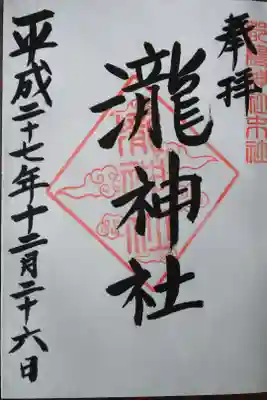 奉拝
瀧神社
平成二十七年十二月二十六日